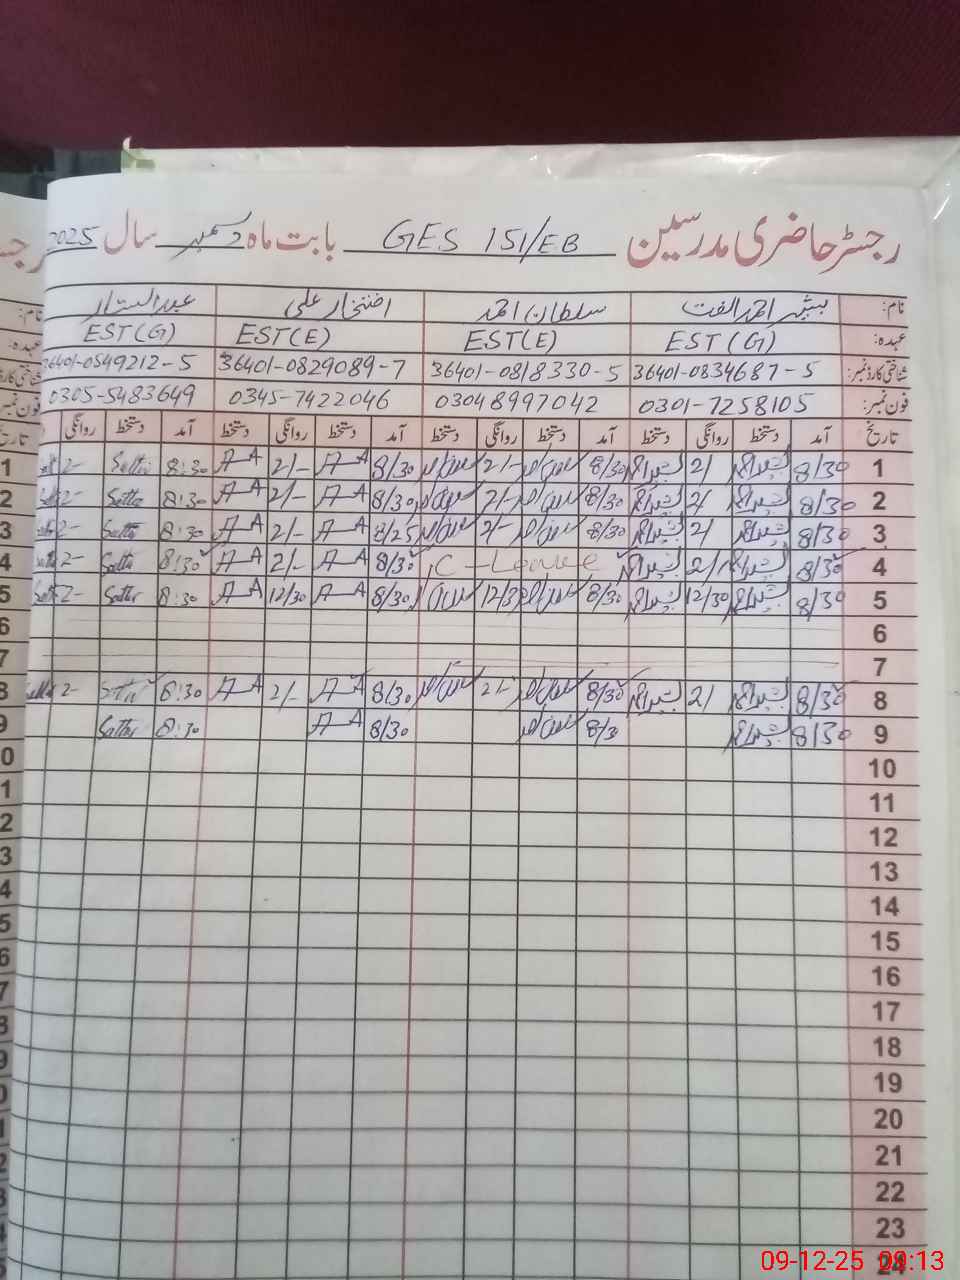 رجسٹر حاضری مدرسین GES 151/EB بابت ماہ دسمبر سال 2025
نام: بشیر احمد الفت سلطان احمد افتخار علی عبدالستار
عہدہ: EST (G) EST(E) EST(E) EST(G)
شناختی کارڈ نمبر: 36401-0834687-5 36401-0818330-5 36401-0829089-7 36401-0549212-5
فون نمبر: 0301-7258105 03048997042 0345-7422046 0305-5483649
تاریخ آمد دستخط روانگی دستخط آمد دستخط روانگی دستخط آمد دستخط روانگی دستخط آمد دستخط روانگی
1 8/30 2/ 8/30 2/- 8/30 A-A 2/- A-A 8:30 Sattar 2-
2 8/30 2/ 8/30 2/- 8/30 A-A 2/- A-A 8:30 Sattar 2-
3 8/30 2/ 8/30 2/- 8/25 A-A 2/- A-A 8:30 Sattar 2-
4 8/30 2/ C-Leave 8/30 A-A 2/- A-A 8:30 Sattar 2-
5 8/30 12/30 8/30 12/30 8/30 A-A 12/30 A-A 8:30 Sattar 2-
6
7
8 8/30 2/ 8/30 2/- 8/30 A-A 2/- A-A 8:30 Sattar 2-
9 8/30 8/3 8/30 A-A 8:30 Sattar
10
11
12
13
14
15
16
17
18
19
20
21
22
23
24
09-12-25 09:13